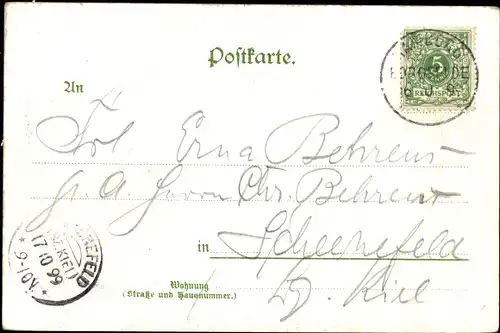 Postkarte.
5
REICHSPOST
An
Frl. Erna Behrens
Chr. Behrens
in Scheenefeld
Bz. Kiel
Wohnung
(Straße und Hausnummer.)
(BZ. KIEL)
17 10 99
* 9-10V. *